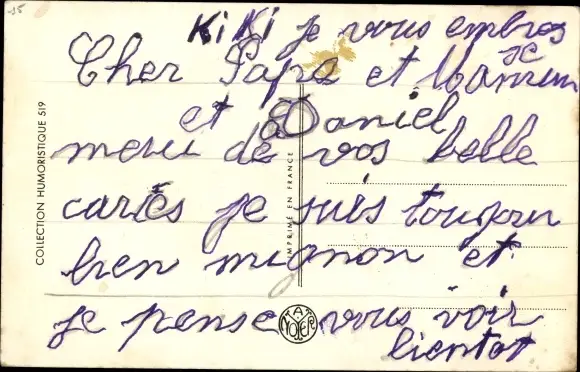 15
KiKi je vous embras
se
Cher Papa et Maman
et Daniel
merci de vos belle
cartes je suis toujour
bien mignon et
je pense vous voir
bientot
COLLECTION HUMORISTIQUE 519
IMPRIMÉ EN FRANCE